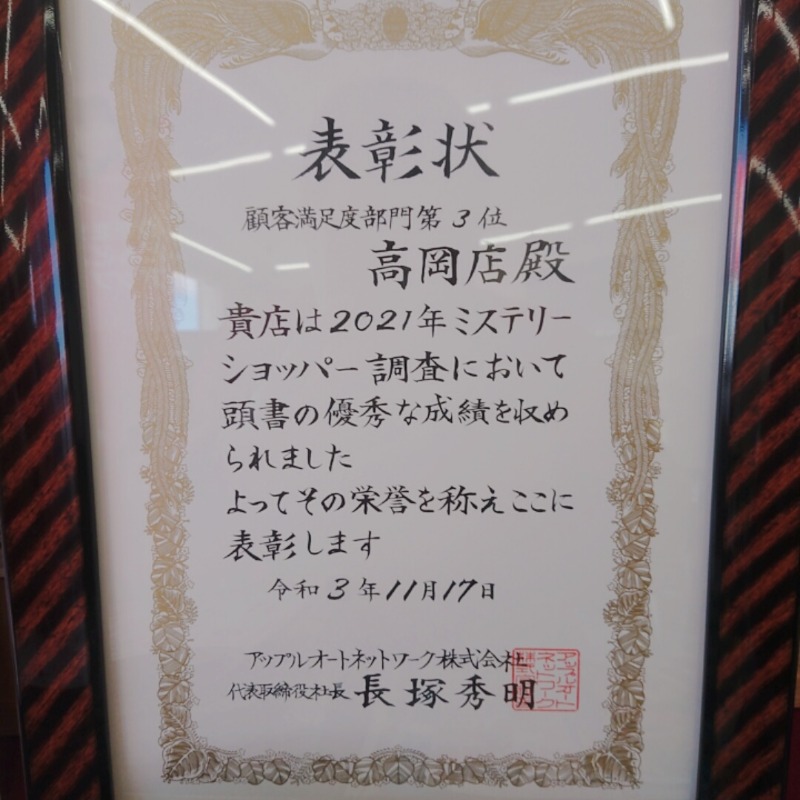 表彰状
顧客満足度部門第3位
高岡店殿
貴店は2021年ミステリー
ショッパー調査において
頭書の優秀な成績を収め
られました
よってその栄誉を称えここに
表彰します
令和3年11月17日
アップルオートネットワーク株式会社
代表取締役社長 長塚秀明